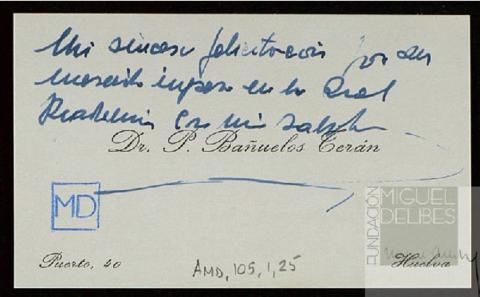 Mi sincera felicitación por su
merecido ingreso en la Real
Academia Con mi saludo
Dr. P. Bañuelos Terán
MD
FUNDACIÓN
MIGUEL
DELIBES
Puerto, 40
AMD, 105, 1, 25
Huelva